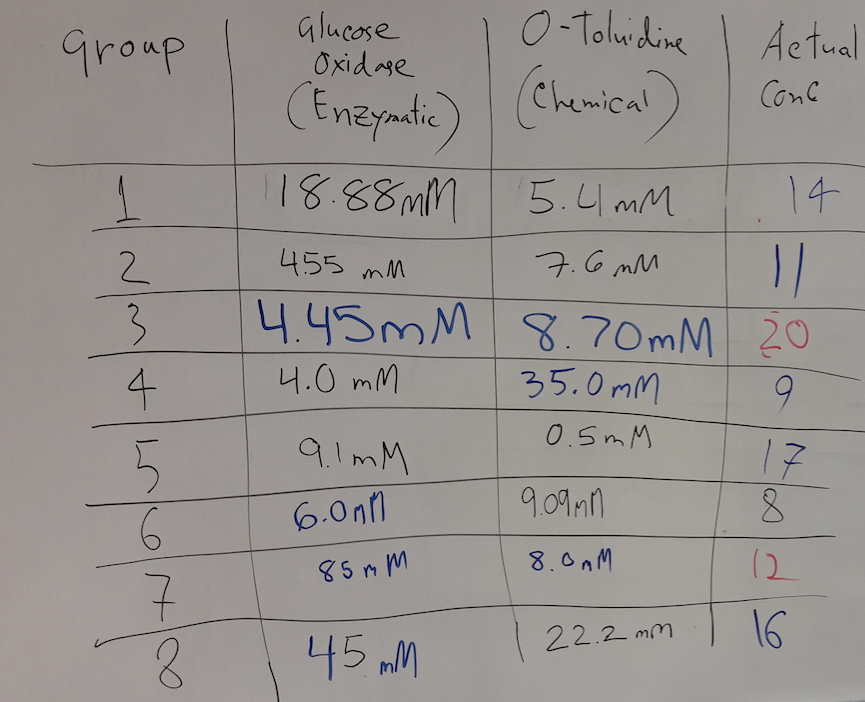 Group Glucose Oxidase (Enzymatic) O-Toluidine (Chemical) Actual Conc
1 18.88mM 5.4 mM 14
2 455 mM 7.6 mM 11
3 4.45mM 8.70mM 20
4 4.0 mM 35.0mM 9
5 9.1mM 0.5mM 17
6 6.0mM 9.09mM 8
7 85 mM 8.0mM 12
8 45 mM 22.2 mm 16